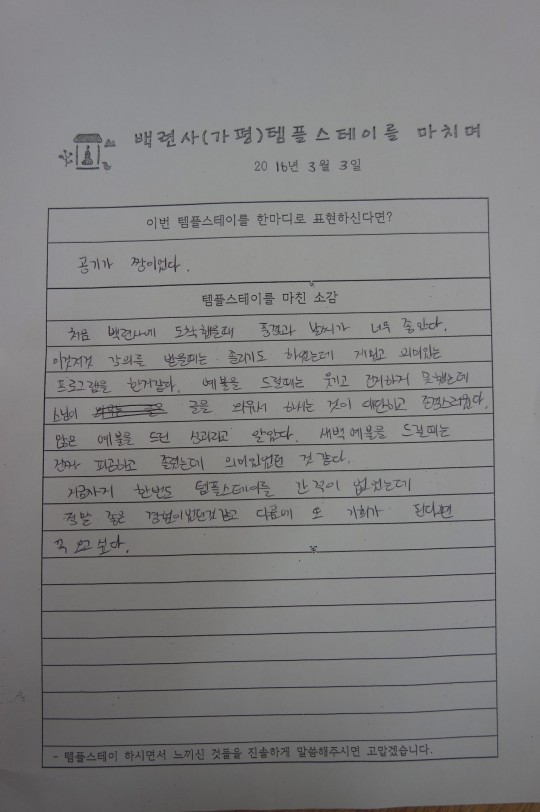 백련사(가평)템플스테이를 마치며
2016년 3월 3일
이번 템플스테이를 한마디로 표현하신다면?
공기가 짱이었다.
템플스테이를 마친 소감
처음 백련사에 도착했을때 풍경과 날씨가 너무 좋았다.
이것저것 강의를 받을때는 졸리기도 하였는데 재밌고 의미있는
프로그램을 한거같다. 예불을 드릴때는 웃기고 진지하게 못했는데
스님이 글을 외우셔 하시는 것이 대단하고 존경스러웠다.
많은 예불을 드린 성과라고 알았다. 새벽 예불을 드릴때는
진짜 피곤하고 졸렸는데 의미있었던 것 같다.
지금까지 한번도 템플스테이를 간 적이 없었는데
정말 좋은 경험이었던것같고 다음에 또 기회가 된다면
꼭 오고 싶다.
- 템플스테이 하시면서 느끼신 것들을 진솔하게 말씀해주시면 고맙겠습니다.